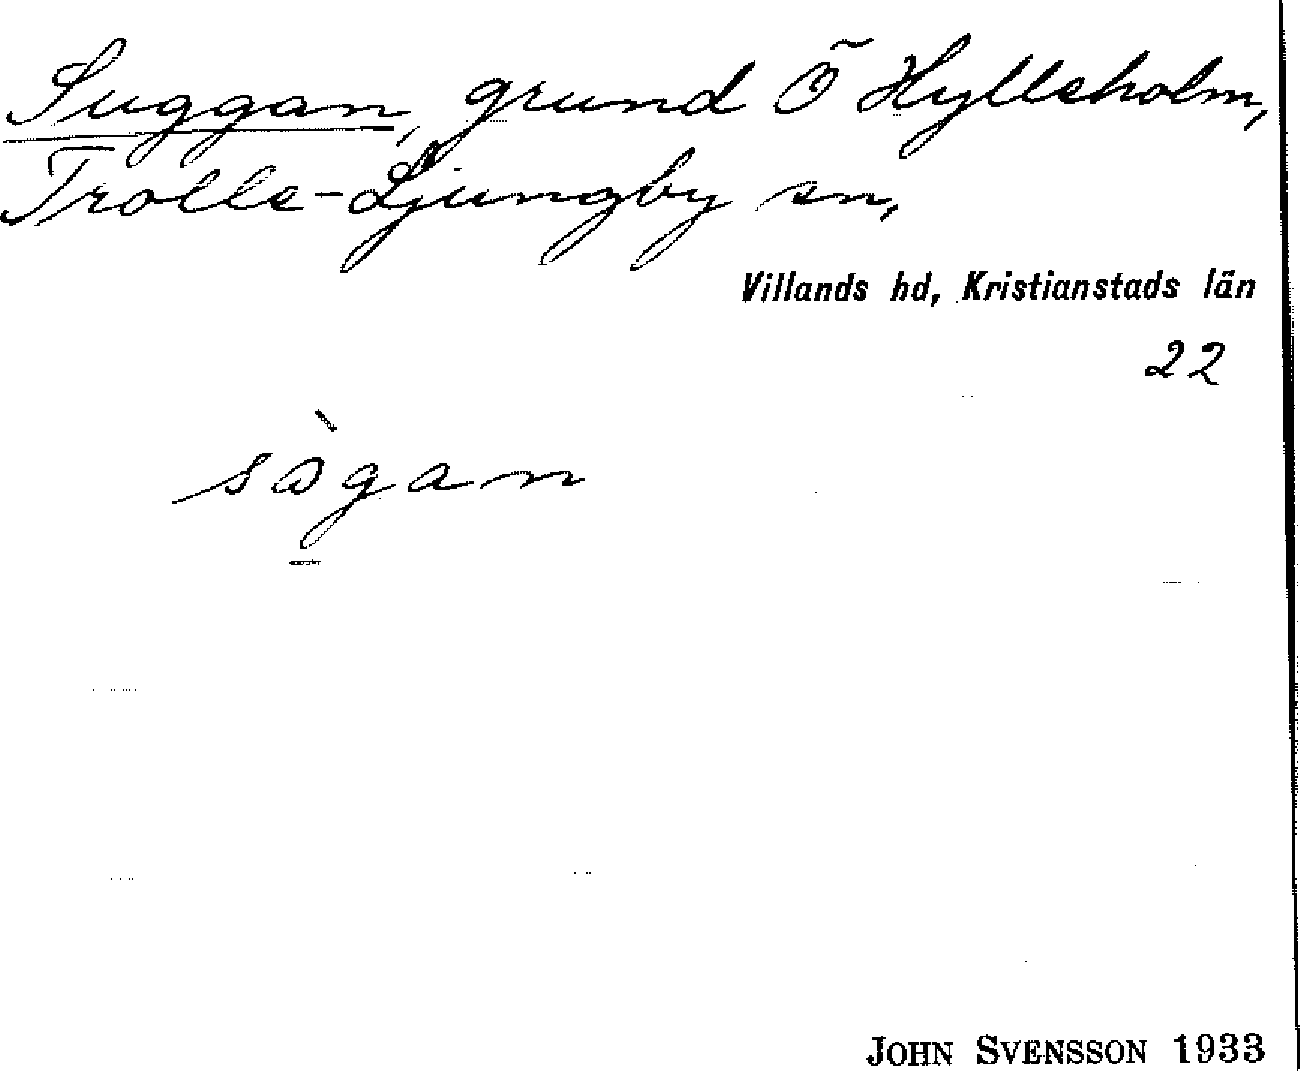 Suggan, grund Ö Hylleholm,
Trolle-Ljungby sn,
Villands hd, Kristianstads län
22
sògan
JOHN SVENSSON 1933